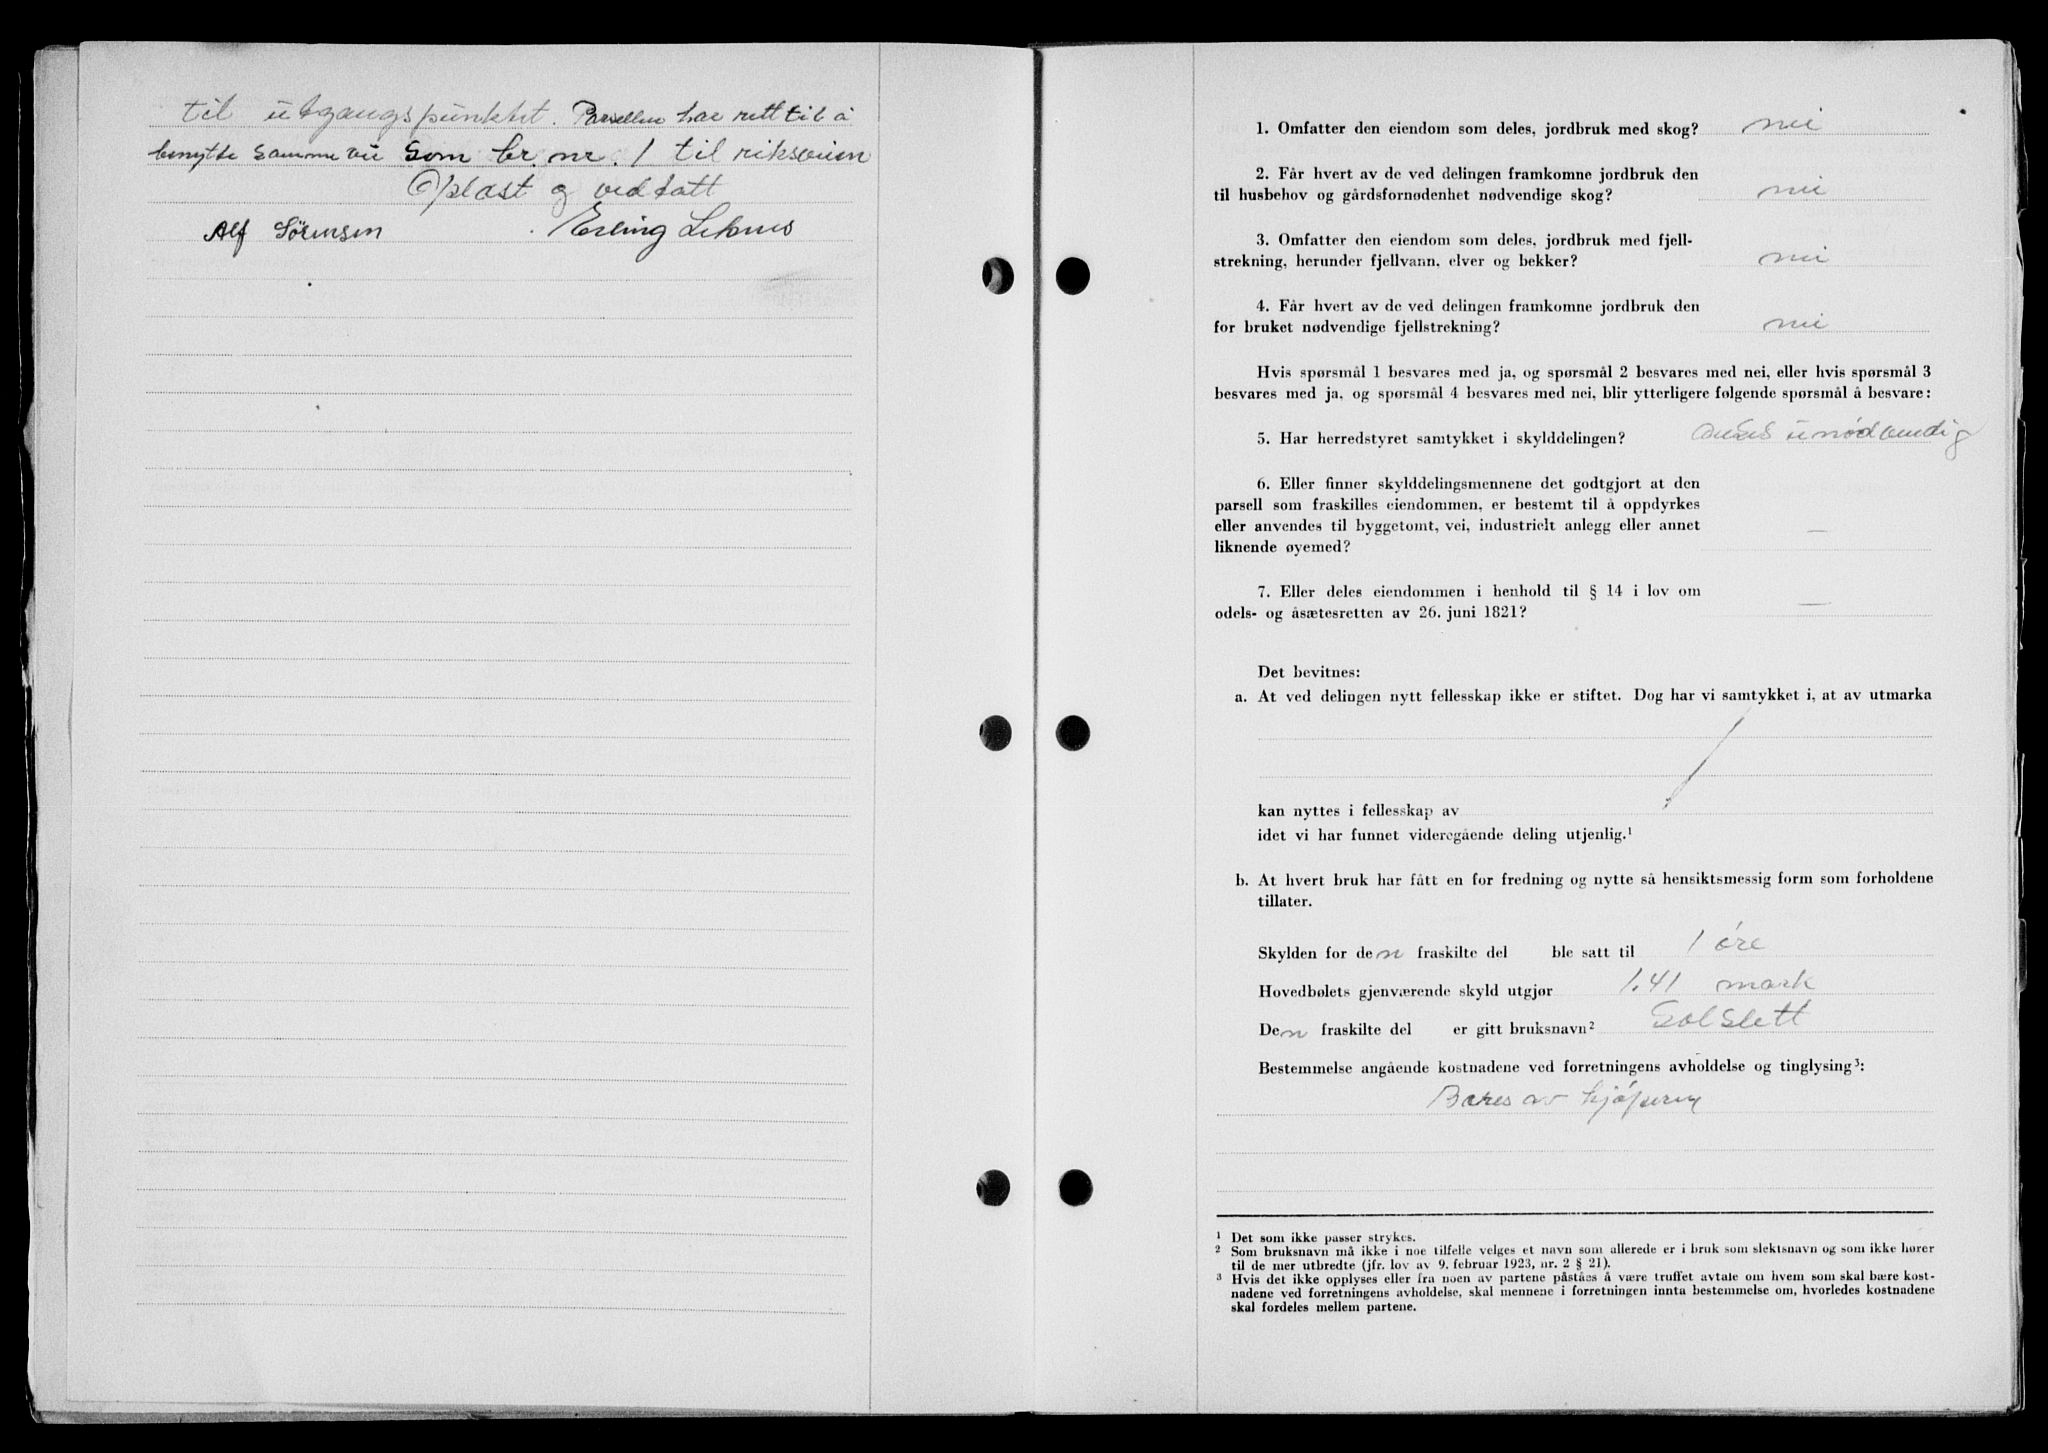 til utgangspunktet. Parsellen har rett til å
benytte samme vei som br. nr. 1 til riksveien
Oplæst og vedtatt
Alf Sörensen Erling
1. Omfatter den eiendom som deles, jordbruk med skog? nei
2. Får hvert av de ved delingen framkomne jordbruk den
til husbehov og gårdsfornødenhet nødvendige skog? nei
3. Omfatter den eiendom som deles, jordbruk med fjell-
strekning, herunder fjellvann, elver og bekker? nei
4. Får hvert av de ved delingen framkomne jordbruk den
for bruket nødvendige fjellstrekning? nei
Hvis spørsmål 1 besvares med ja, og spørsmål 2 besvares med nei, eller hvis spørsmål 3
besvares med ja, og spørsmål 4 besvares med nei, blir ytterligere følgende spørsmål å besvare:
5. Har herredstyret samtykket i skylddelingen? ansees unödvendig
6. Eller finner skylddelingsmennene det godtgjort at den
parsell som fraskilles eiendommen, er bestemt til å oppdyrkes
eller anvendes til byggetomt, vei, industrielt anlegg eller annet
liknende øyemed? —
7. Eller deles eiendommen i henhold til § 14 i lov om
odels- og åsætesretten av 26. juni 1821? —
Det bevitnes:
a. At ved delingen nytt fellesskap ikke er stiftet. Dog har vi samtykket i, at av utmarka
kan nyttes i fellesskap av
idet vi har funnet videregående deling utjenlig.¹
b. At hvert bruk har fått en for fredning og nytte så hensiktsmessig form som forholdene
tillater.
Skylden for den fraskilte del ble satt til 1 öre
Hovedbølets gjenværende skyld utgjør 1.41 mark
Den fraskilte del er gitt bruksnavn² Solslett
Bestemmelse angående kostnadene ved forretningens avholdelse og tinglysing³:
Bæres av kjöperen
¹ Det som ikke passer strykes.
² Som bruksnavn må ikke i noe tilfelle velges et navn som allerede er i bruk som slektsnavn og som ikke hører
til de mer utbredte (jfr. lov av 9. februar 1923, nr. 2 § 21).
³ Hvis det ikke opplyses eller fra noen av partene påståes å være truffet avtale om hvem som skal bære kost-
nadene ved forretningens avholdelse, skal mennene i forretningen innta bestemmelse om, hvorledes kostnadene
skal fordeles mellem partene.